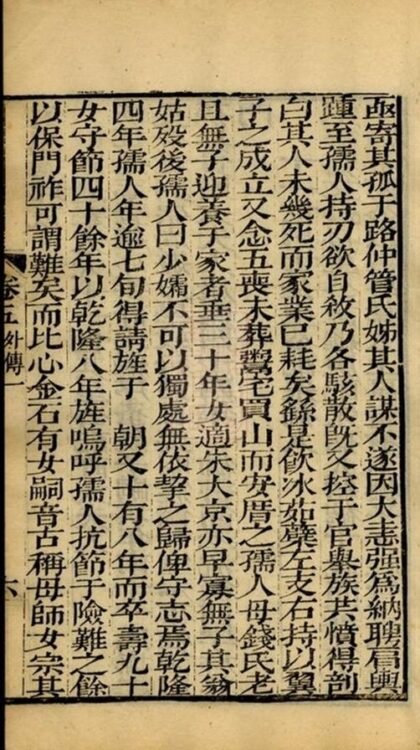 亟寄其孤于路仲管氏姊其人謀不遂因大恚强為納聘肩輿
踵至孺人持刃欲自殺乃各駭散旣又控于官舉族共憤得剖
白其人未幾死而家業已耗矣繇是飮冰茹蘗左支右持以翼
子之成立又念五喪未葬鬻宅買山而安厝之孺人母錢氏老
且無子迎養于家者垂三十年女適朱大京亦早寡無子其翁
姑歿後孺人曰少孀不可以獨處無依挈之歸俾守志焉乾隆
四年孺人年逾七旬得請旌于 朝又十有八年而卒壽九十
女守節四十餘年以乾隆八年旌嗚呼孺人抗節于險難之餘
以保門祚可謂難矣而比心金石有女嗣音古稱母師女宗其
卷五外傳一
六